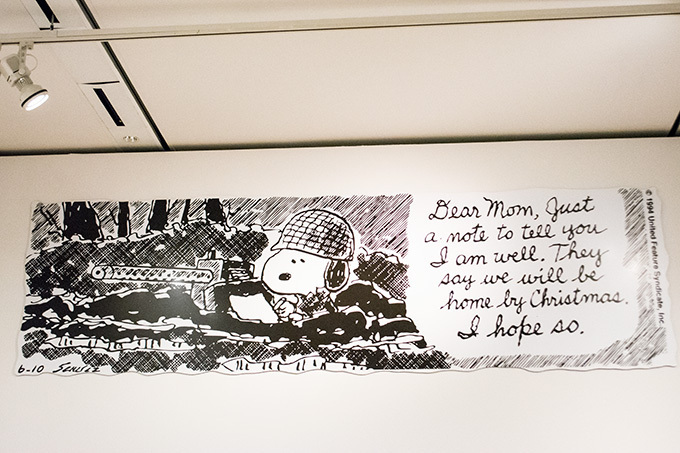 Dear Mom, Just
a note to tell you
I am well. They
say we will be
home by Christmas.
I hope so.
© 1994 United Feature Syndicate, Inc.
6-10 SCHULZ